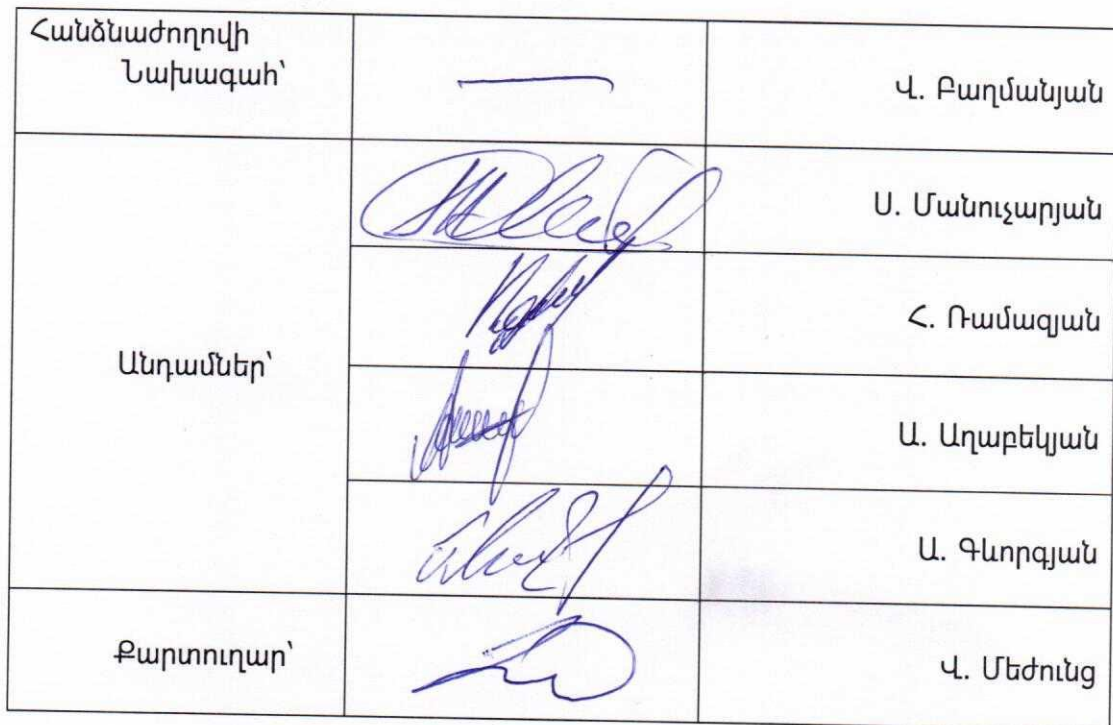 Հանձնաժողովի
Նախագահ՝
Վ. Բաղմանյան
Ս. Մանուչարյան
Հ. Ռամազյան
Անդամներ՝
Ա. Աղաբեկյան
Ա. Գևորգյան
Քարտուղար՝
Վ. Մեժունց